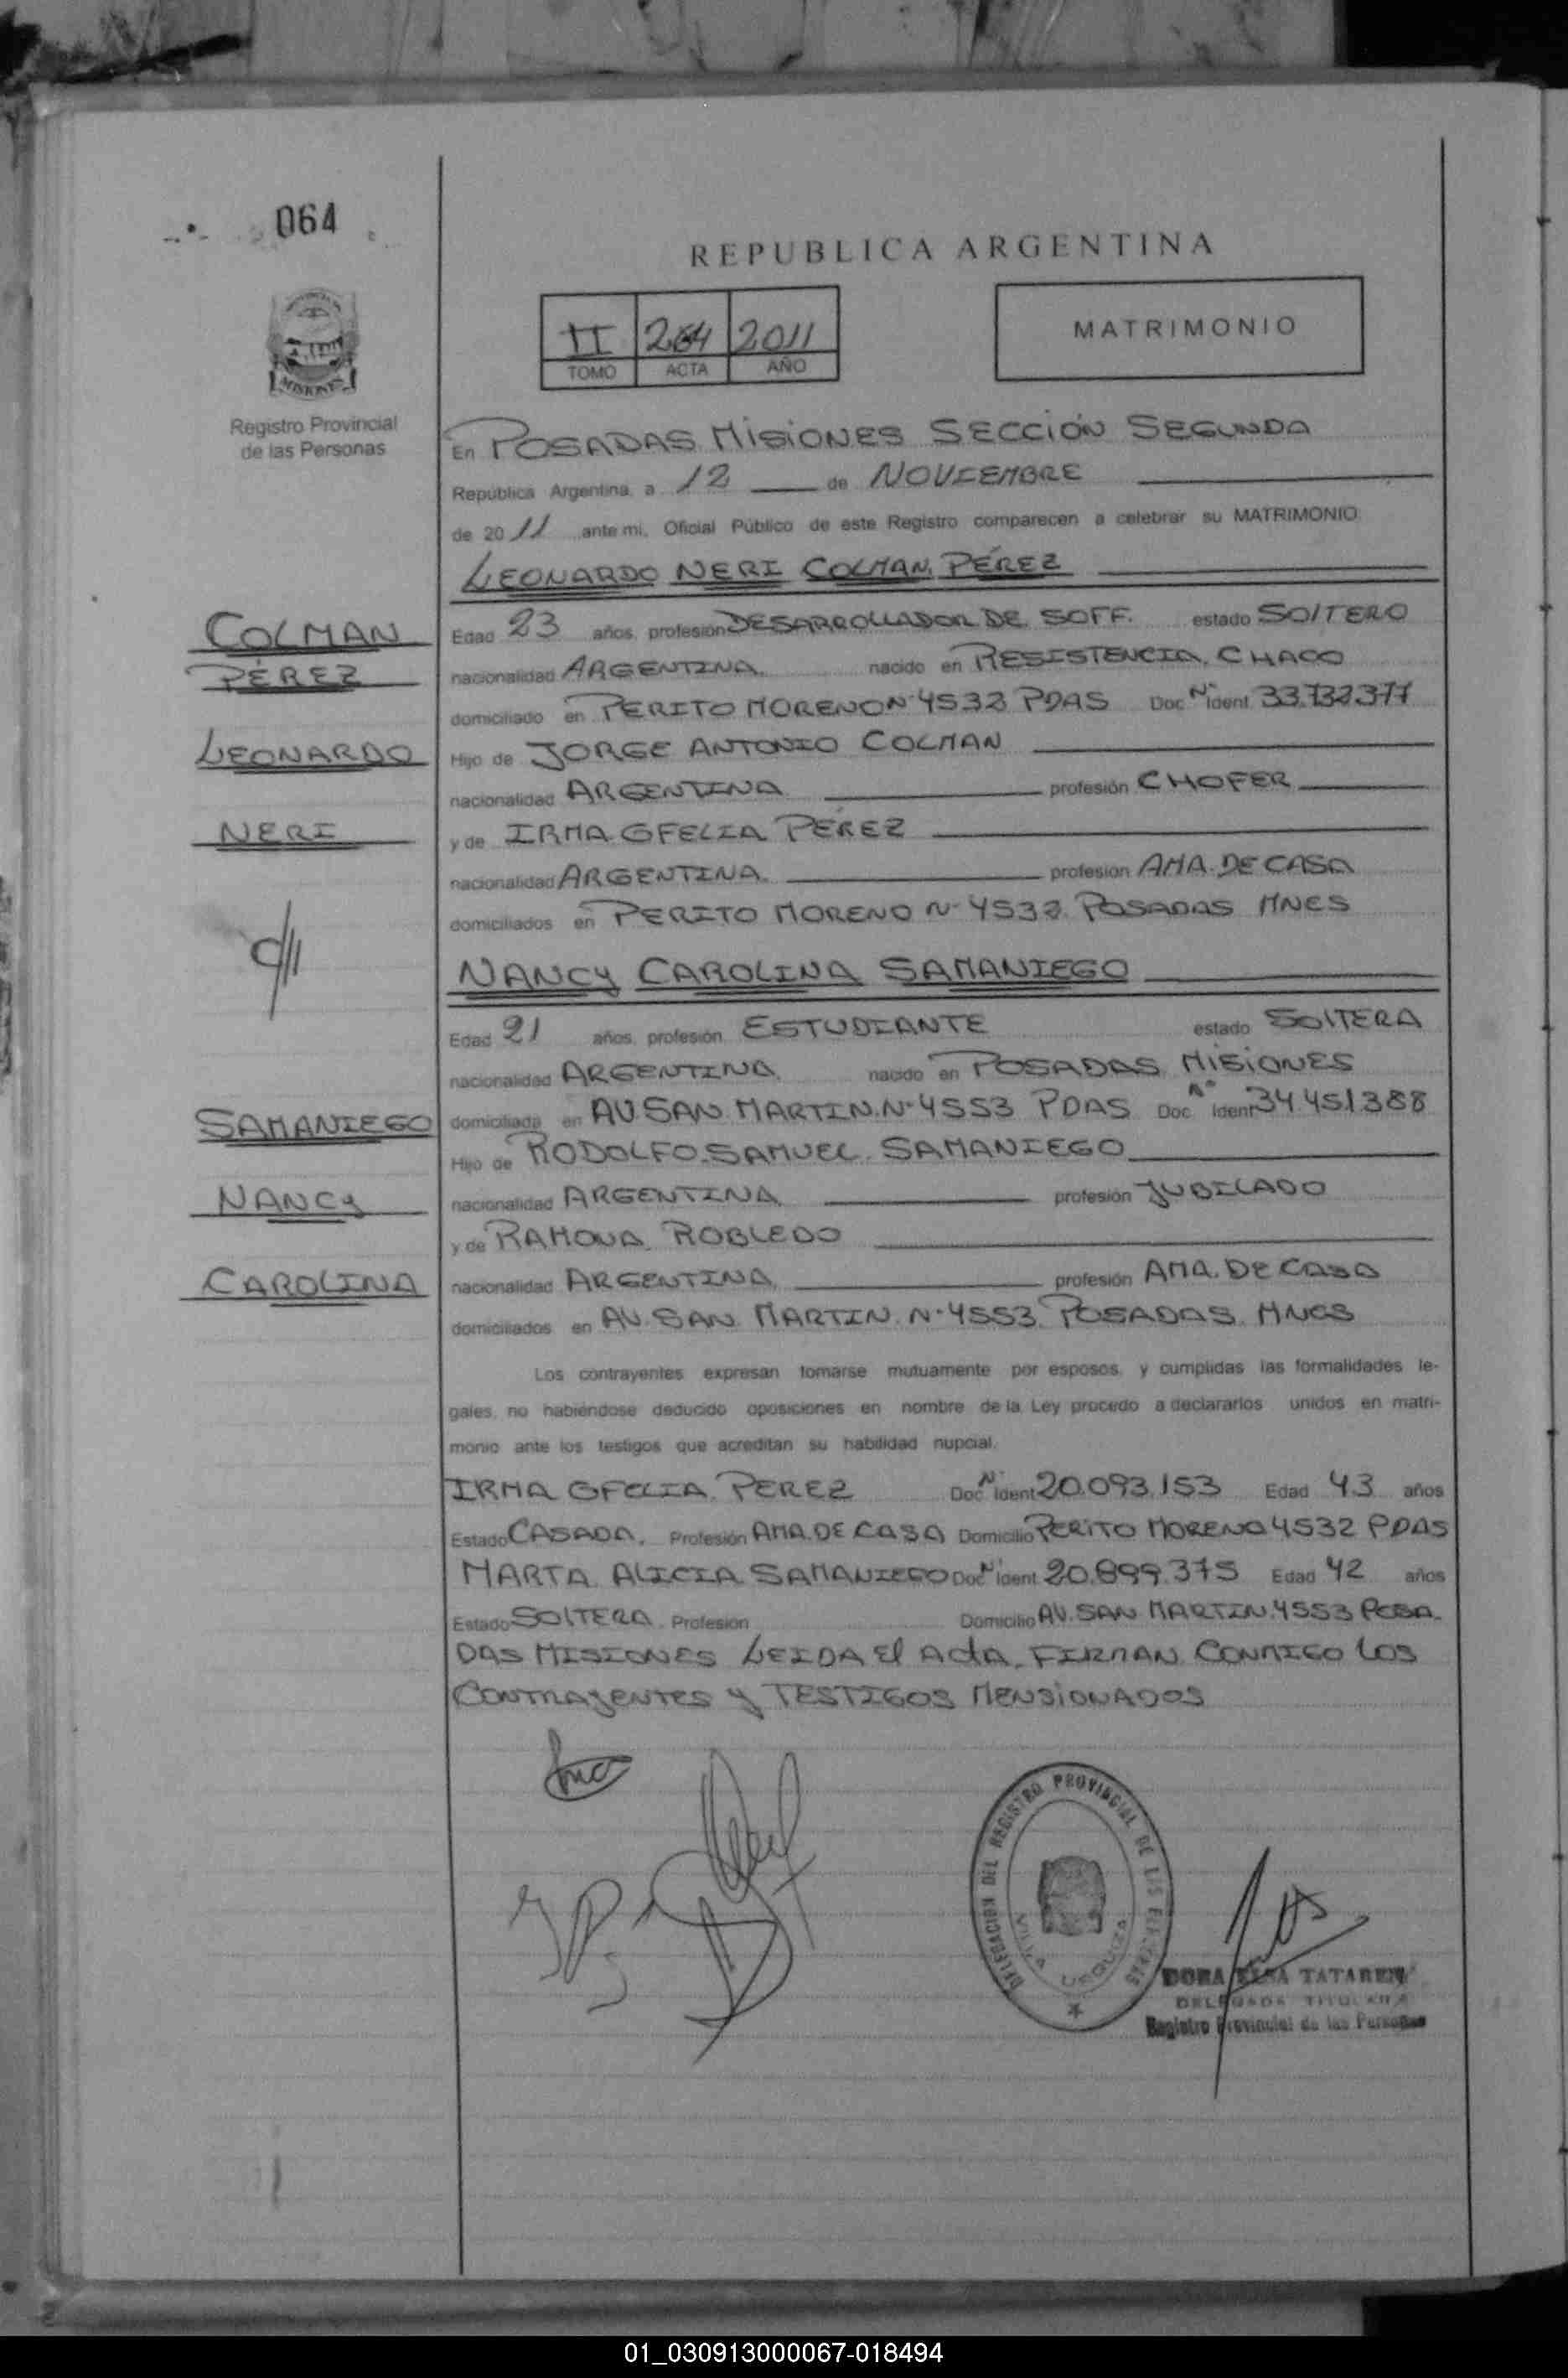 064
REPUBLICA ARGENTINA
II 264 2011
TOMO ACTA AÑO
MATRIMONIO
MISIONES
Registro Provincial
de las Personas
En POSADAS MISIONES SECCIÓN SEGUNDA
República Argentina, a 12 de NOVIEMBRE
de 2011 ante mi, Oficial Público de este Registro comparecen a celebrar su MATRIMONIO
LEONARDO NERI COLMAN PÉREZ
COLMAN
PÉREZ
LEONARDO
NERI
Edad 23 años, profesión DESARROLLADOR DE SOFF. estado SOLTERO
nacionalidad ARGENTINA nacido en RESISTENCIA, CHACO
domiciliado en PERITO MORENO Nº 4532 PDAS Doc Nº Ident 33.732.377
Hijo de JORGE ANTONIO COLMAN
nacionalidad ARGENTINA profesión CHOFER
y de IRMA OFELIA PÉREZ
nacionalidad ARGENTINA profesión AMA DE CASA
domiciliados en PERITO MORENO Nº 4532 POSADAS MNES
NANCY CAROLINA SAMANIEGO
SAMANIEGO
NANCY
CAROLINA
Edad 21 años, profesión ESTUDIANTE estado SOLTERA
nacionalidad ARGENTINA nacido en POSADAS MISIONES
domiciliada en AV. SAN MARTIN Nº 4553 PDAS Doc Nº Ident 34.451.388
Hijo de RODOLFO SAMUEL SAMANIEGO
nacionalidad ARGENTINA profesión JUBILADO
y de RAMONA ROBLEDO
nacionalidad ARGENTINA profesión AMA DE CASA
domiciliados en AV. SAN MARTIN Nº 4553 POSADAS MNES
Los contrayentes expresan tomarse mutuamente por esposos, y cumplidas las formalidades le-
gales, no habiéndose deducido oposiciones en nombre de la Ley procedo a declararlos unidos en matri-
monio ante los testigos que acreditan su habilidad nupcial.
IRMA OFELIA PEREZ Doc Nº Ident 20.093.153 Edad 43 años
Estado CASADA. Profesión AMA DE CASA Domicilio PERITO MORENO 4532 PDAS
MARTA ALICIA SAMANIEGO Doc Nº Ident 20.899.375 Edad 42 años
Estado SOLTERA Profesión Domicilio AV. SAN MARTIN 4553 POSA-
DAS MISIONES LEIDA El ActA, FIRMAN CONMIGO LOS
CONTRAYENTES y TESTIGOS MENSIONADOS
DELEGACION DEL REGISTRO PROVINCIAL DE LAS PERSONAS
VILLA URQUIZA
DORA ELSA TATAREN
DELEGADA TITULAR
Registro Provincial de las Personas
01_030913000067-018494